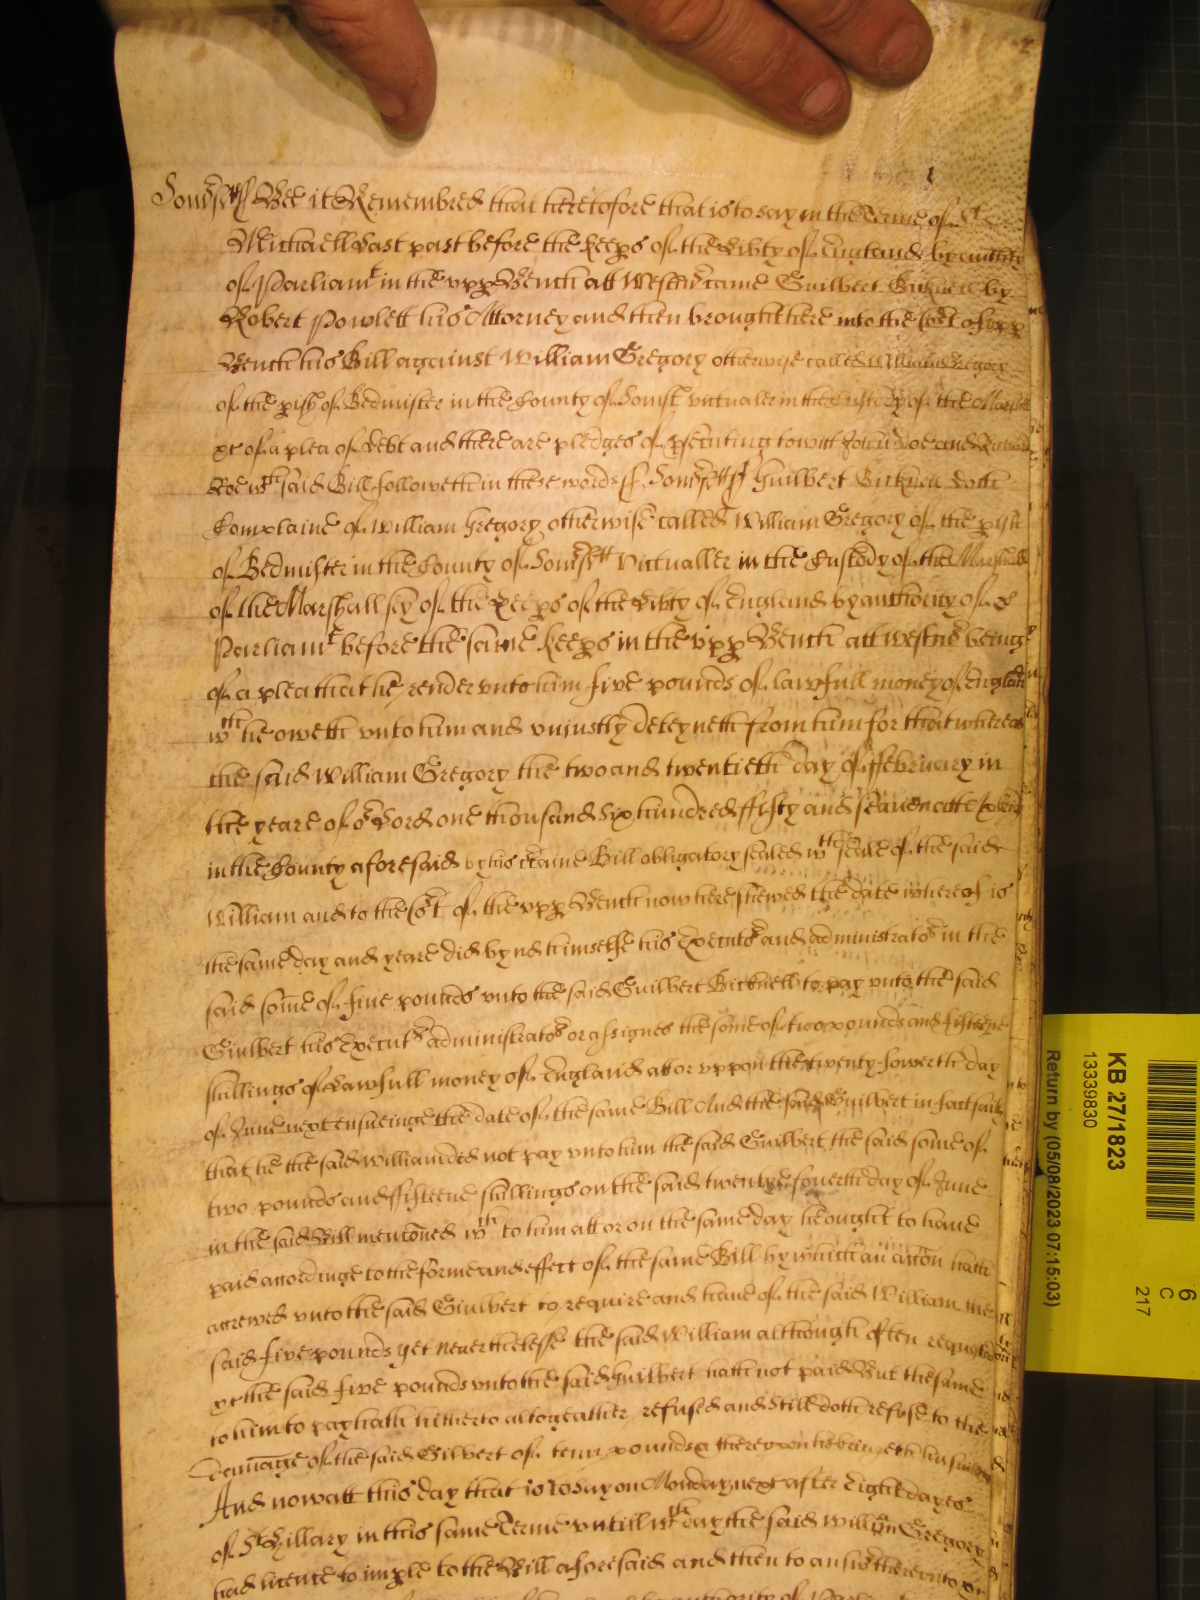 Somersett ss Bee it Remembred that heretofore that is to say in the Terme of St
Michaell Last past before the Keeps of the Libty of England by authity
of Parliamt in the upp Bench att Westmr came Guilbert Bicknell by
Robert Powlett his Attorney and then brought here into the Cort of upp
Bench his Bill against William Gregory otherwise called William Gregory
of the pish of Bedmister in the County of Somst victualer in the Custody of the Marshall
&c of a plea of debt and there are pledges of psecuting to witt John Doe and Richard
Roe wch said Bill followeth in these words ss Somersett ss Guilbert Bicknell doth
Complaine of William Gregory otherwise called William Gregory of the pish
of Bedmister in the County of Somersett Victualler in the Custody of the Marshall
of the Marshallsey of the Keeps of the Libty of England by authority of
Parliamt before the same Keeps in the upp Bench att Westmr being
of a plea that he render unto him five pounds of lawfull money of England
wch he oweth unto him and uniustly deteyneth from him for that whereas
the said William Gregory the two and twentieth day of February in
the yeare of or Lord one thousand six hundred fifty and seaven atte
in the County aforesaid by his certaine Bill obligatory sealed wth seale of the said
William and to the Cort of the upp Bench now here shewed the date whereof is
the same day and yeare did bynd himselfe his Executrs and administrators in the
said some of five pounds unto the said Guilbert Bicknell to pay unto the said
Guilbert his Executrs administrators or assignes the some of two pounds and fifteene
shillings of Lawfull money of England att or uppon the twenty fowerth day
of June next ensueinge the date of the same Bill And the said Guilbert in fact saith
that he the said William did not pay unto him the said Guilbert the said some of
two pounds and fifteene shillings on the said twentye fowerth day of June
in the said Bill menconed wch to him att or on the same day he ought to have
paid accordinge to the forme and effect of the same Bill by which an accon hath
accrewed unto the said Guilbert to require and have of the said William the
said five pounds yet neverthelesse the said William although often requested
&c the said five pounds unto the said Guilbert hath not paid But the same
to him to pay hath hitherto altogeather refused and still doth refuse to the
damage of the said Gilbert of tenn pounds & thereupon he bringeth his suite
And now att this day that is to say on Monday next after Eight dayes
of St Hillary in this same Terme untill wch day the said Willm Gregory
had licence to imple to the Bill aforesaid and then to answ thereunto &c
KB 27/1823
13339830
Return by (05/08/2023 07:15:03)
6
C
217